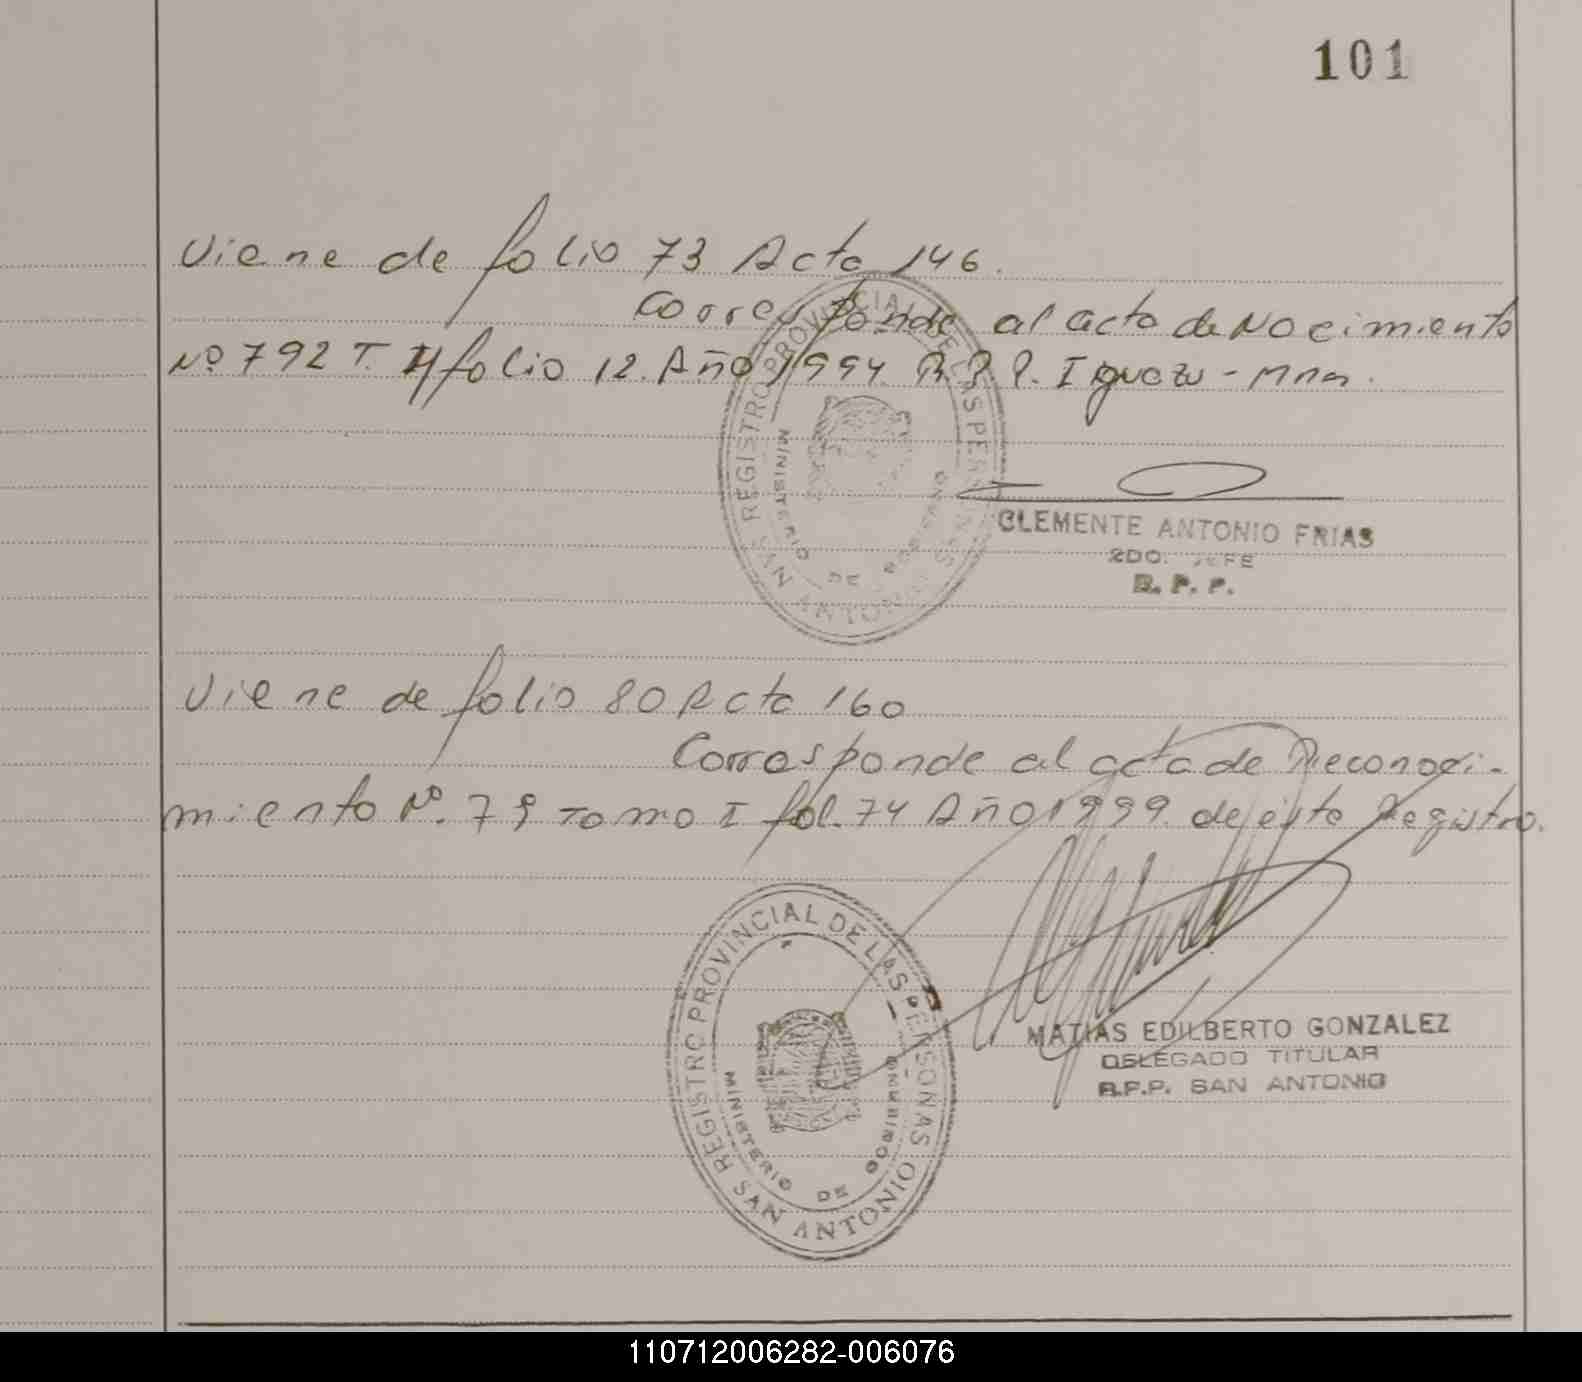 101
Viene de folio 73 Acta 146.
Corresponde al acta de Nacimiento
Nº 792 T. II folio 12. Año 1994. R.P.P. Iguazu - Mnes.
REGISTRO PROVINCIAL DE LAS PERSONAS
MINISTERIO DE GOBIERNO
SAN ANTONIO
CLEMENTE ANTONIO FRIAS
2DO. JEFE
R. P. P.
Viene de folio 80 Acta 160
Corresponde al acta de Reconoci-
miento Nº. 79 Tomo I fol. 74 Año 1999. de este Registro.
REGISTRO PROVINCIAL DE LAS PERSONAS
MINISTERIO DE GOBIERNO
SAN ANTONIO
MATIAS EDILBERTO GONZALEZ
DELEGADO TITULAR
R.P.P. SAN ANTONIO
110712006282-006076